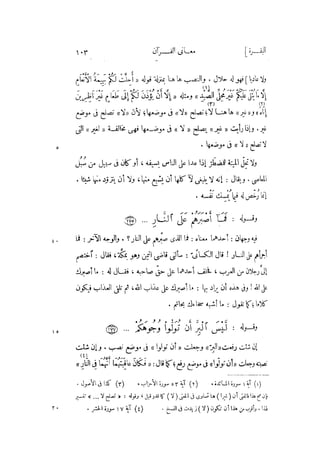 البقــرة ] معـانى القــرآن ١٠٣
ولا عاديا ] فهو له حلال . والنصب ها هنا بمنزلة قوله « أُحِلَّتْ لَكُمْ بَهِيمَةُ الْأَنْعَامِ
إِلَّا مَا يُتْلَى عَلَيْكُمْ غَيْرَ مُحِلِّى الصَّيْدِ » ومثله « إِلَّا أَنْ يُؤْذَنَ لَكُمْ إِلَى طَعَامٍ غَيْرَ نَاظِرِينَ
إِنَاهُ » و « غير » هاهنا لا تصلح « لا » فى موضعها ؛ لأن « لا » تصلح فى موضع
غير . وإذا رأيت « غير » يصلح « لا » فى موضعها فهى مخالفة « لغير » التى
لا تصلح « لا » فى موضعها .
ولا تحل الميتة للمضطر إذا عدا على الناس بسيفه ، أو كان فى سبيل من سُبُل
المعاصى . ويقال : إنه لا ينبغى لآكلها أن يشبع منها ، ولا أن يتزوّد منها شيئا .
إنما رُخّص له فيما يُمسك نَفْسه .
وقــوله : فَمَـآ أَصْبَرَهُمْ عَلَى النَّـارِ ... (١٧٥)
فيه وجهان : أحدهما معناه : فما الذى صبَّرهم على النار ؟ . والوجه الآخر : فما
أجرأهم على النار ! قال الكسائىّ : سألنى قاضى اليمن وهو بمكة ، فقال : اختصم
إلىّ رجلان من العرب ، فحلف أحدهما على حقّ صاحبه ، فقال له : ما أصبرك
على الله ! وفى هذه أن يراد بها : ما أصبرك على عذاب الله ، ثم تلقى العذاب فيكون
كلاما ؛ كما تقول : ما أشبه سخاءك بحاتم .
وقــوله : لَّيْسَ الْبِرَّ أَن تُوَلُّوا۟ وُجُوهَكُمْ ... (١٧٧)
إن شئت رفعت « البرّ » وجعلت « أن تولوا » فى موضع نصب . وإن شئت
نصبته وجعلت « أن تولّوا » فى موضع رفع ؛ كما قال : « فَكَانَ عَاقِبَتَهُمَا أَنَّهُمَا فِى النَّارِ »
(١) آية ١ سورة المائدة . (٢) آية ٥٣ سورة الأحزاب . (٣) كذا فى الأصول .
(٤) آية ١٧ سورة الحشر .